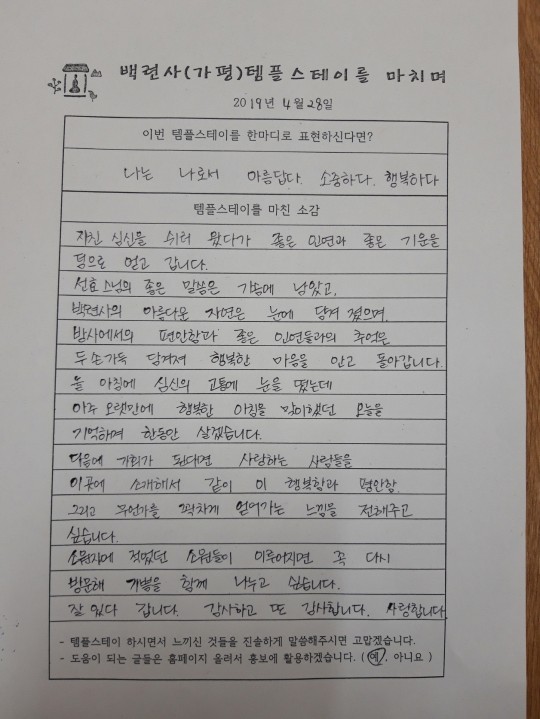 백련사(가평)템플스테이를 마치며
2019년 4월 28일
이번 템플스테이를 한마디로 표현하신다면?
나는 나로서 아름답다. 소중하다. 행복하다
템플스테이를 마친 소감
지친 심신을 쉬러 왔다가 좋은 인연과 좋은 기운을
덤으로 얻고 갑니다.
선효스님의 좋은 말씀은 가슴에 남았고,
백련사의 아름다운 자연은 눈에 담겨졌으며,
방사에서의 편안함과 좋은 인연들과의 추억은
두손가득 담겨져 행복한 마음을 안고 돌아갑니다.
올 아침에 심신의 고통에 눈을 떴는데
아주 오랫만에 행복한 아침을 맞이했던 오늘을
기억하며 한동안 살겠습니다.
다음에 기회가 된다면 사랑하는 사람들을
이곳에 소개해서 같이 이 행복함과 편안함.
그리고 무언가를 꽉차게 얻어가는 느낌을 전해주고
싶습니다.
소원지에 적었던 소원들이 이루어지면 꼭 다시
방문해 기쁨을 함께 나누고 싶습니다.
잘 있다 갑니다. 감사하고 또 감사합니다. 사랑합니다
- 템플스테이 하시면서 느끼신 것들을 진솔하게 말씀해주시면 고맙겠습니다.
- 도움이 되는 글들은 홈페이지 올려서 홍보에 활용하겠습니다. ( 예, 아니요 )